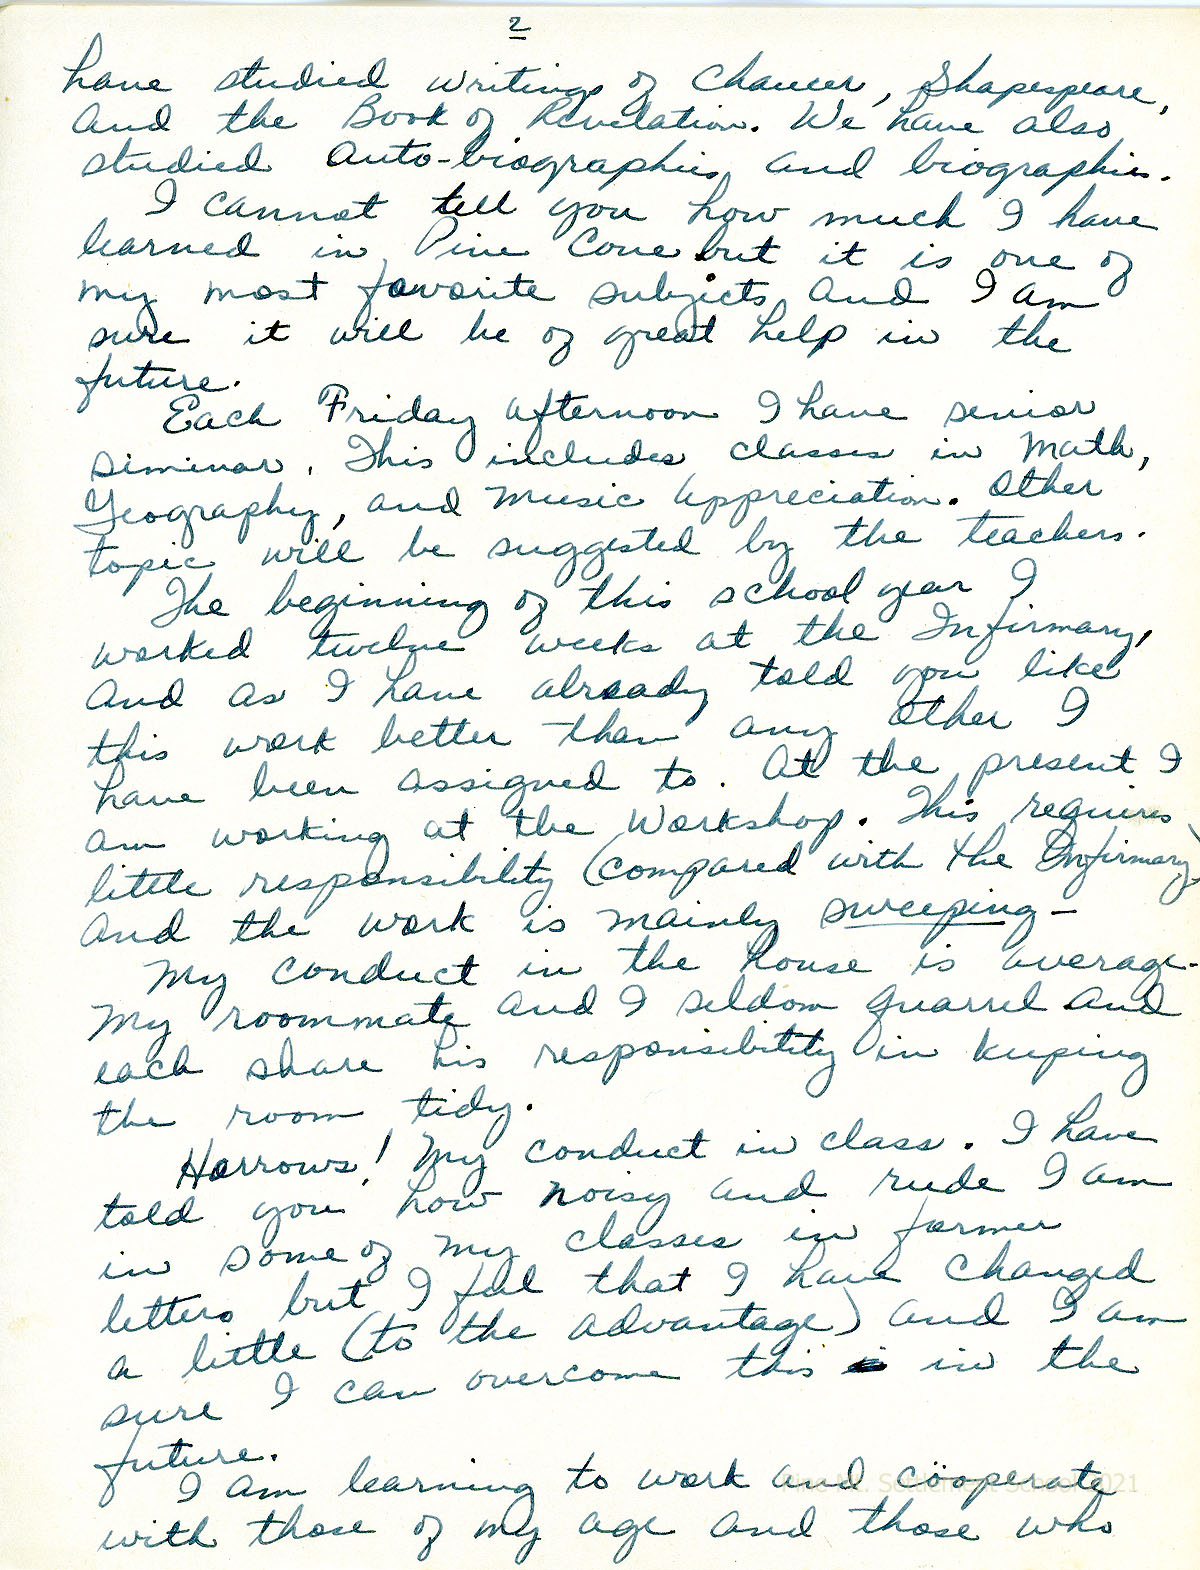 2
have studied writings of Chaucer, Shapespeare,
and the Book of Revelation. We have also
studied Auto-biographies and biographies.
I cannot tell you how much I have
learned in Pine Cone but it is one of
my most favorite subjects and I am
sure it will be of great help in the
future.
Each Friday afternoon I have senior
siminar. This includes classes in Math,
Geography, and Music Appreciation. Other
topic will be suggested by the teachers.
The beginning of this school year I
worked twelve weeks at the Infirmary,
and as I have already told you like
this work better than any other I
have been assigned to. At the present I
am working at the Workshop. This requires
little responsibility (compared with the Infirmary)
and the work is mainly sweeping –
My conduct in the house is average.
My roommate and I seldom quarrel and
each share his responsibility in keeping
the room tidy.
Horrows! My conduct in class. I have
told you how noisy and rude I am
in some of my classes in former
letters but I feel that I have changed
a little (to the advantage) and I am
sure I can overcome this in the
future.
I am learning to work and coöperate
with those of my age and those who
Pine Mt. Settlement School 2021